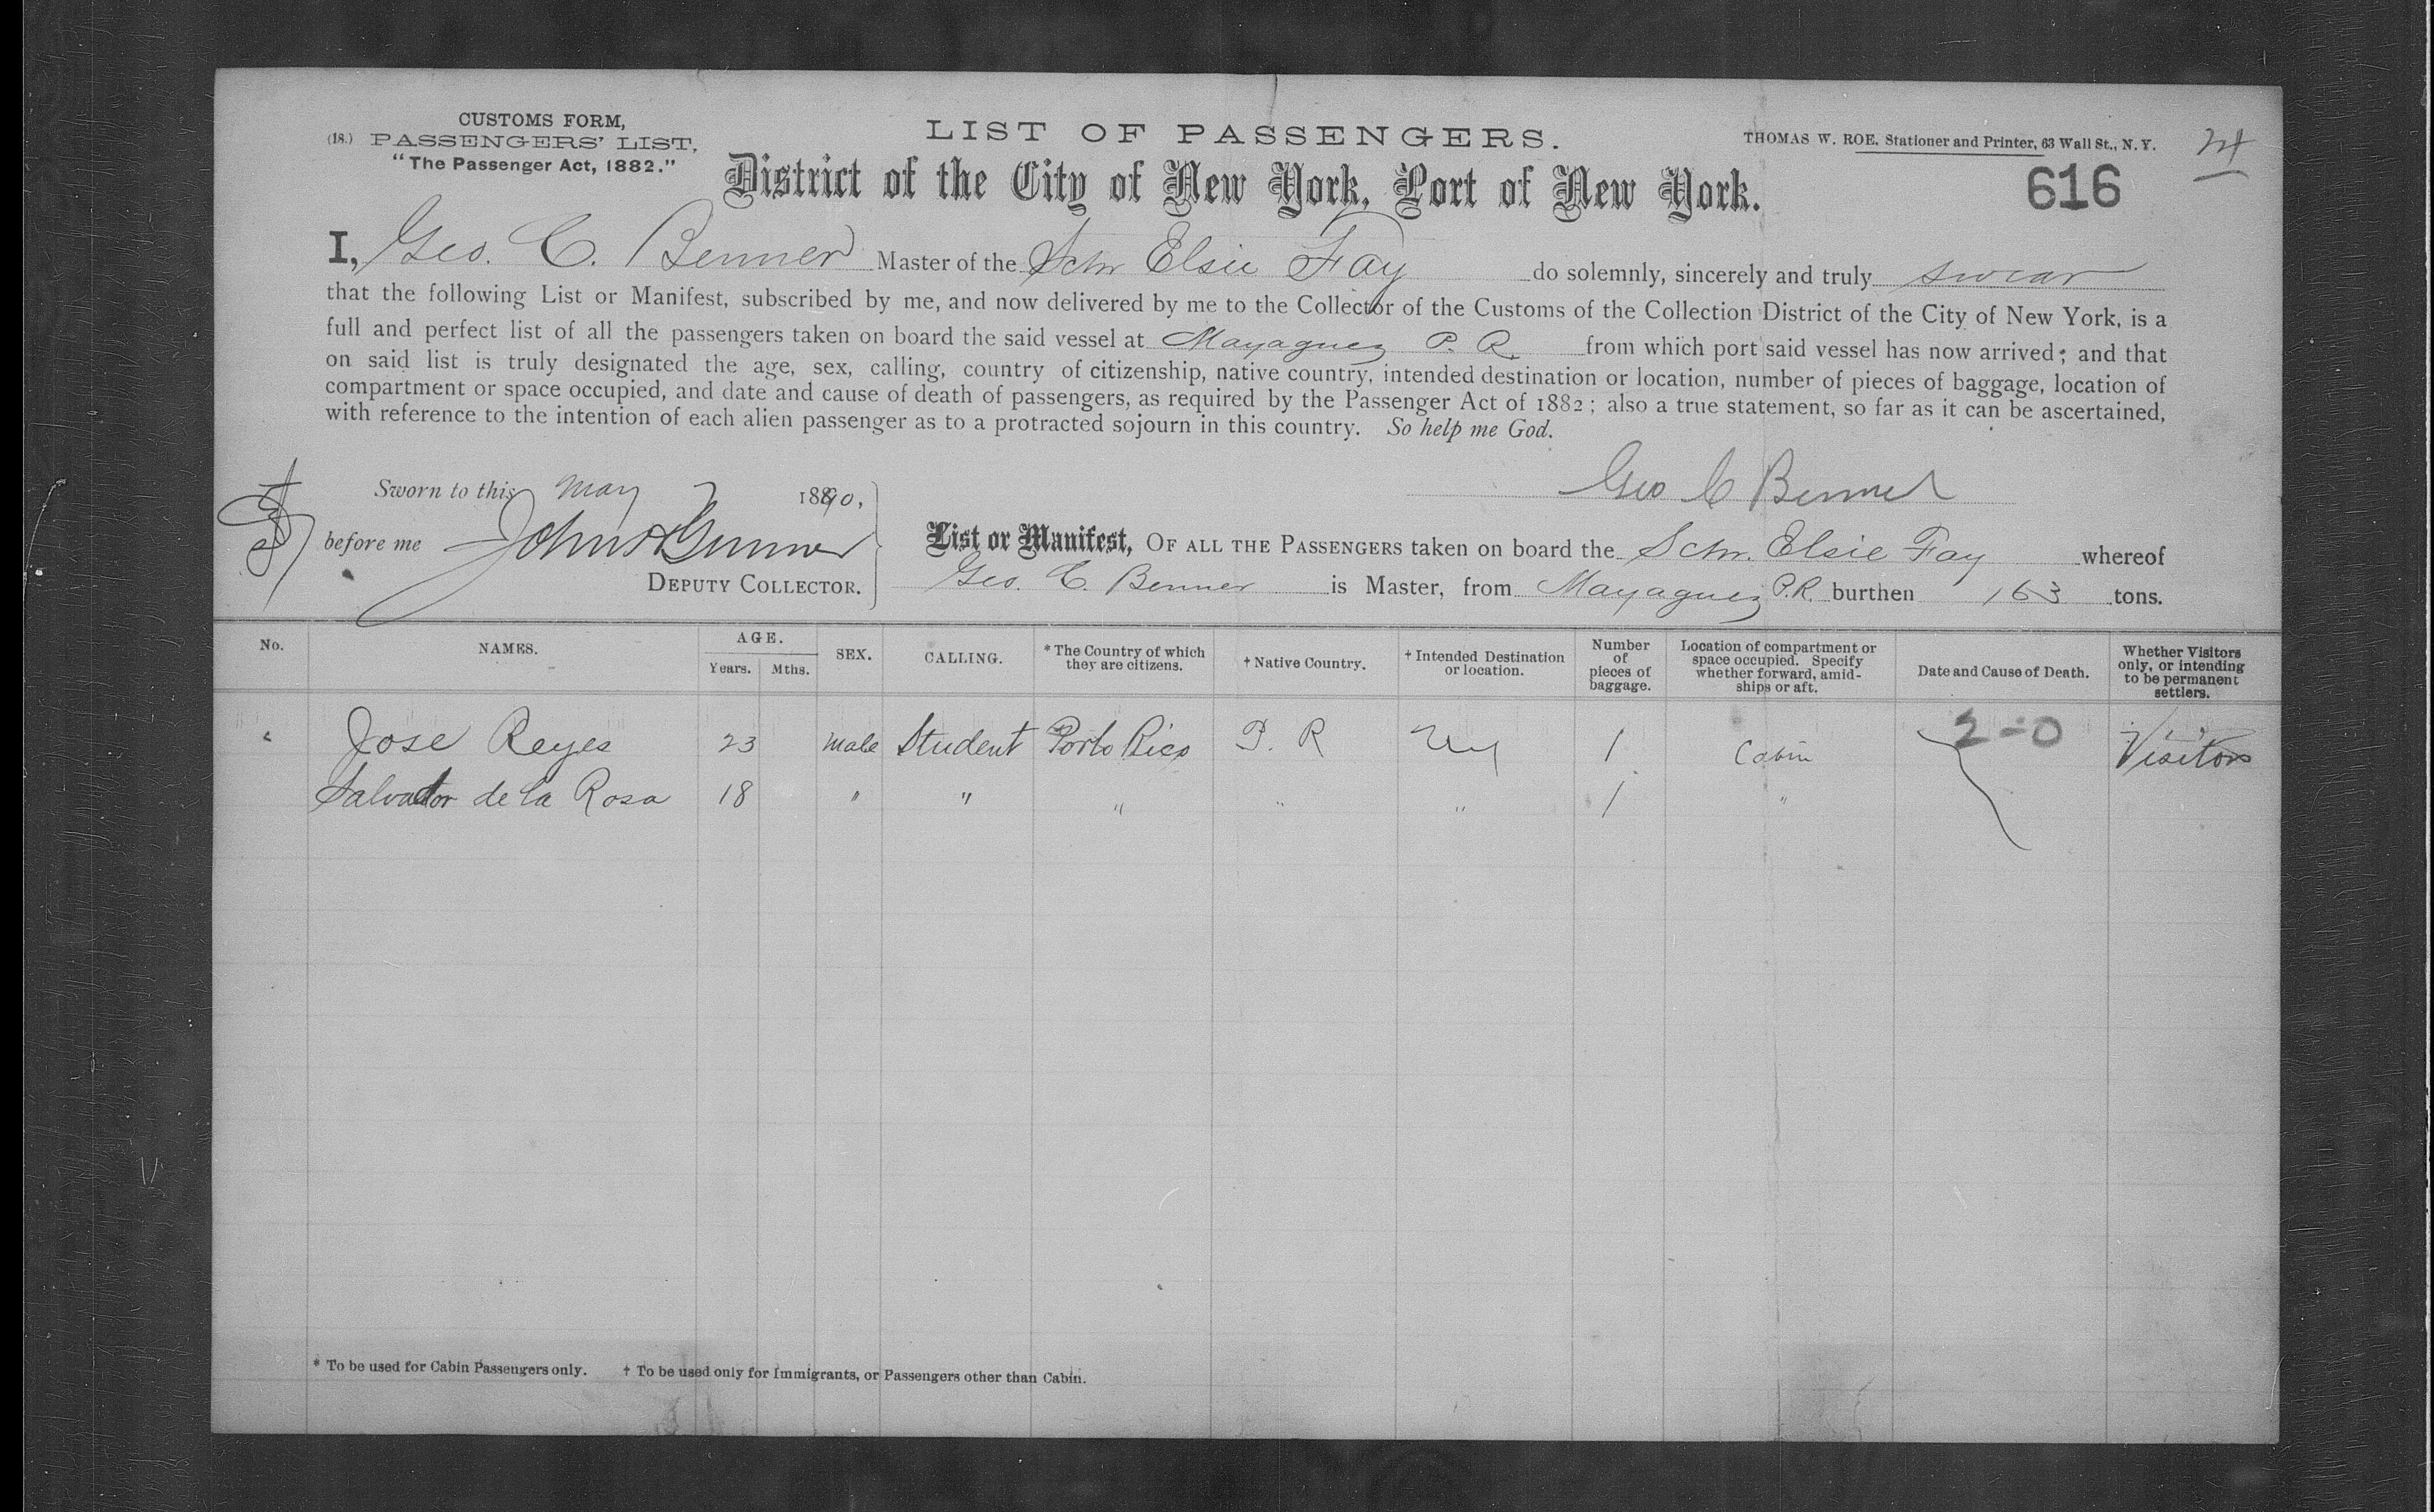 CUSTOMS FORM,
(18.) PASSENGERS' LIST,
"The Passenger Act, 1882."
LIST OF PASSENGERS.
District of the City of New York, Port of New York.
THOMAS W. ROE, Stationer and Printer, 63 Wall St., N. Y.
616
I, Geo. C. Benner Master of the Schr Elsie Fay do solemnly, sincerely and truly swear
that the following List or Manifest, subscribed by me, and now delivered by me to the Collector of the Customs of the Collection District of the City of New York, is a
full and perfect list of all the passengers taken on board the said vessel at Mayaguez P. R. from which port said vessel has now arrived; and that
on said list is truly designated the age, sex, calling, country of citizenship, native country, intended destination or location, number of pieces of baggage, location of
compartment or space occupied, and date and cause of death of passengers, as required by the Passenger Act of 1882; also a true statement, so far as it can be ascertained,
with reference to the intention of each alien passenger as to a protracted sojourn in this country. So help me God.
Geo C Benner
Sworn to this May 7 1890,
before me John A Gunner
DEPUTY COLLECTOR.
List or Manifest, OF ALL THE PASSENGERS taken on board the Schr. Elsie Fay whereof
Geo. C. Benner is Master, from Mayaguez P.R. burthen 163 tons.
No. NAMES. AGE. Years. Mths. SEX. CALLING. * The Country of which they are citizens. † Native Country. † Intended Destination or location. Number of pieces of baggage. Location of compartment or space occupied. Specify whether forward, amidships or aft. Date and Cause of Death. Whether Visitors only, or intending to be permanent settlers.
Jose Reyes 23 male Student Porto Rico P. R NY 1 Cabin 2-0 Visitors
Salvador de la Rosa 18 " " " " " 1 "
* To be used for Cabin Passengers only. † To be used only for Immigrants, or Passengers other than Cabin.